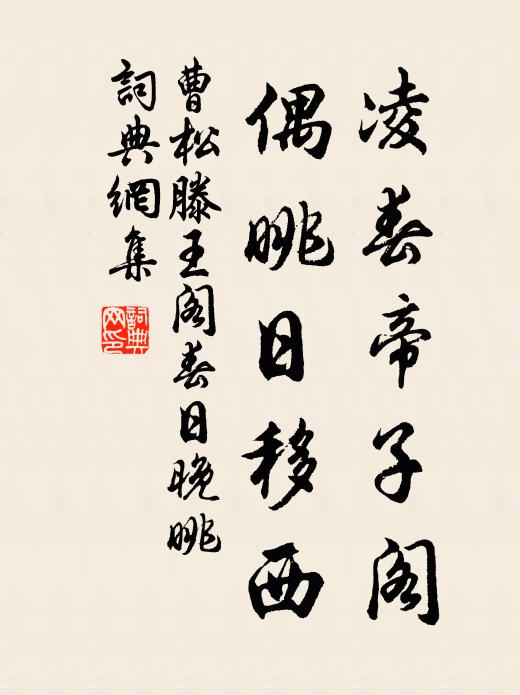 凌春帝子阁
偶眺日移西
曹松滕王阁春日晚眺
詞典網集
詞典
网印